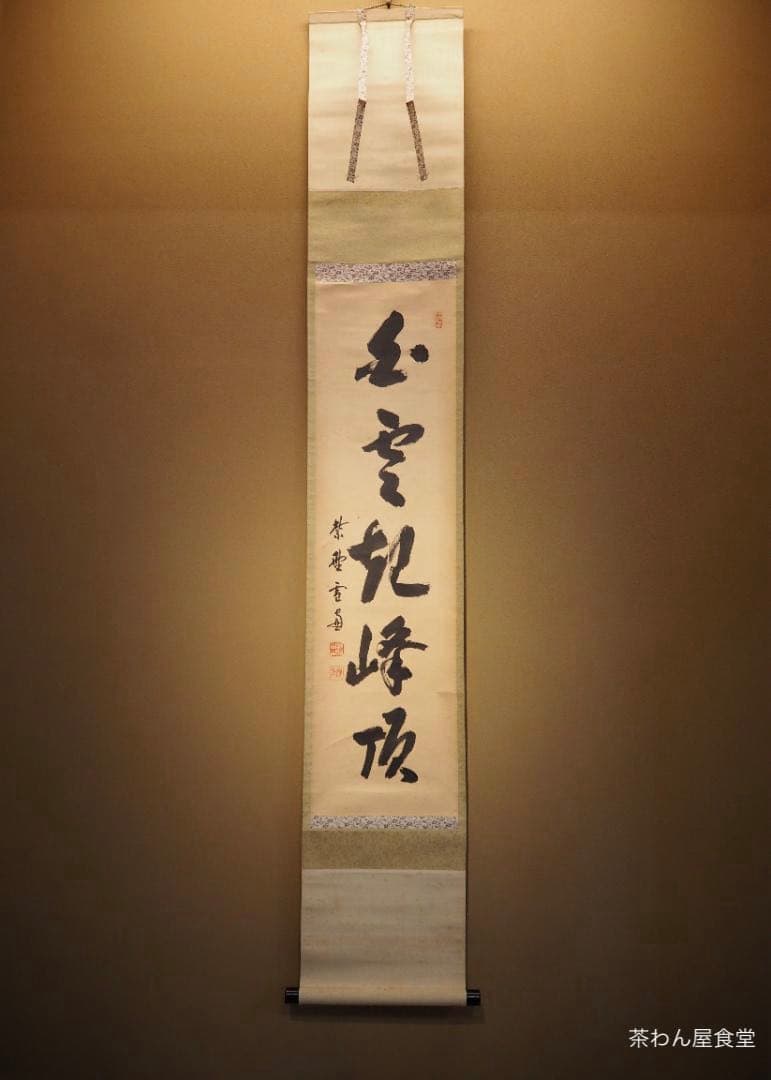 白雲起峰頂
紫野
茶わん屋食堂